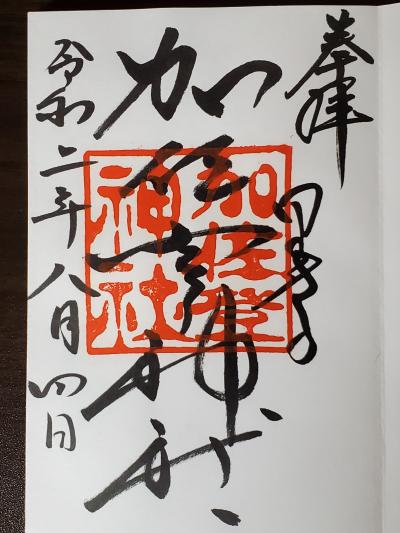 奉拝
加佐登神社
加佐登
神社
令和二年八月四日